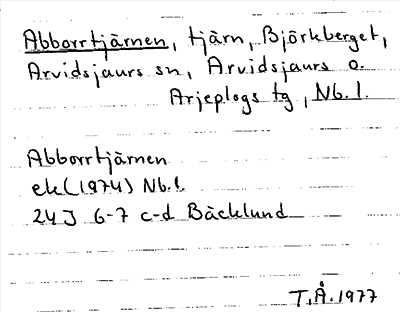 Abborrtjärnen, tjärn, Björkberget,
Arvidsjaurs sn, Arvidsjaurs o.
Arjeplogs tg, Nb. l.
Abborrtjärnen
ek(1974) Nb.l.
24J 6-7 c-d Bäcklund
T.Å.1977